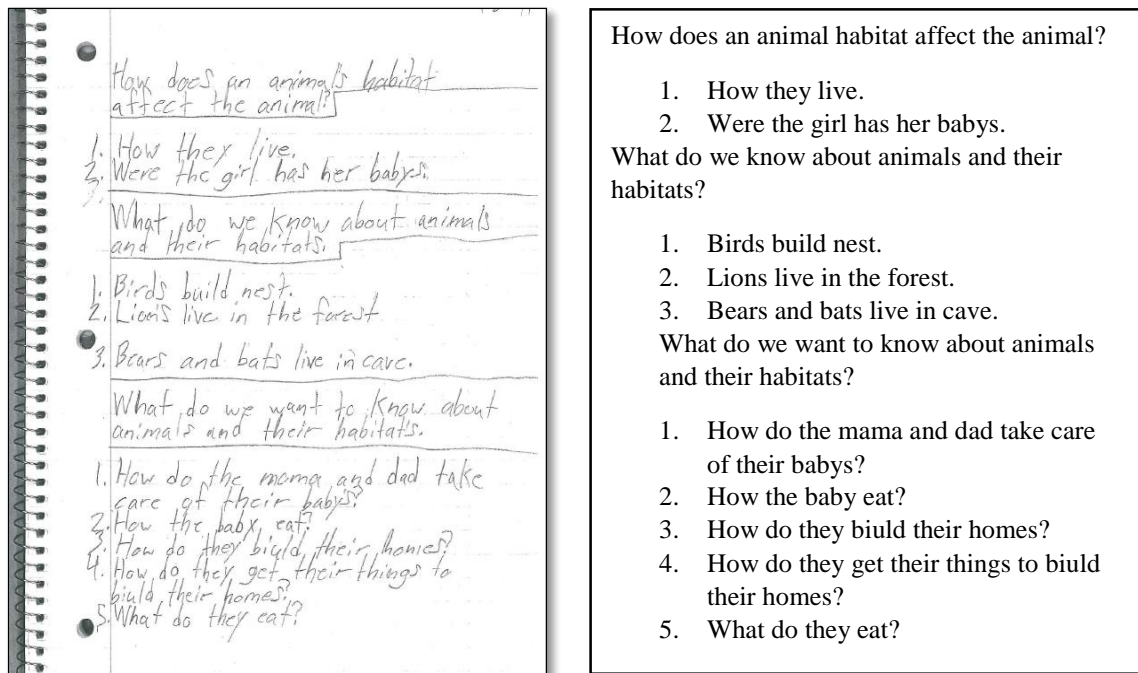 How does an animal's habitat
affect the animal?
1. How they live.
2. Were the girl has her babys.
3.
What do we know about animals
and their habitats.
1. Birds build nest.
2. Lion's live in the forest
3. Bears and bats live in cave.
What do we want to know about
animals and their habitat's.
1. How do the moma and dad take
care of their babys?
2. How the baby eat?
3. How do they biuld their homes?
4. How do they get their things to
biuld their homes?
5. What do they eat?
How does an animal habitat affect the animal?
1. How they live.
2. Were the girl has her babys.
What do we know about animals and their
habitats?
1. Birds build nest.
2. Lions live in the forest.
3. Bears and bats live in cave.
What do we want to know about animals
and their habitats?
1. How do the mama and dad take care
of their babys?
2. How the baby eat?
3. How do they biuld their homes?
4. How do they get their things to biuld
their homes?
5. What do they eat?